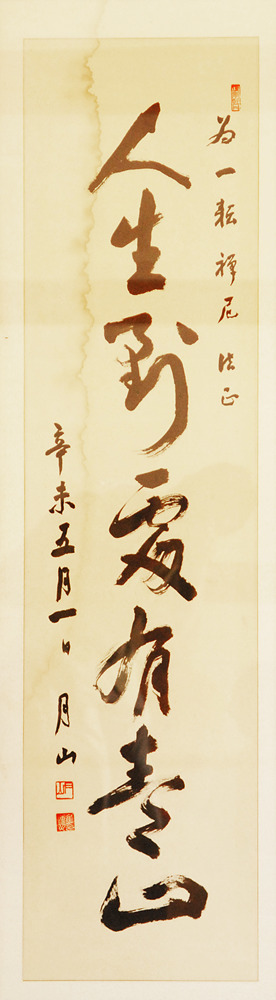 為一耘禪尼 法正
人生到處有青山
辛未五月一日 月山